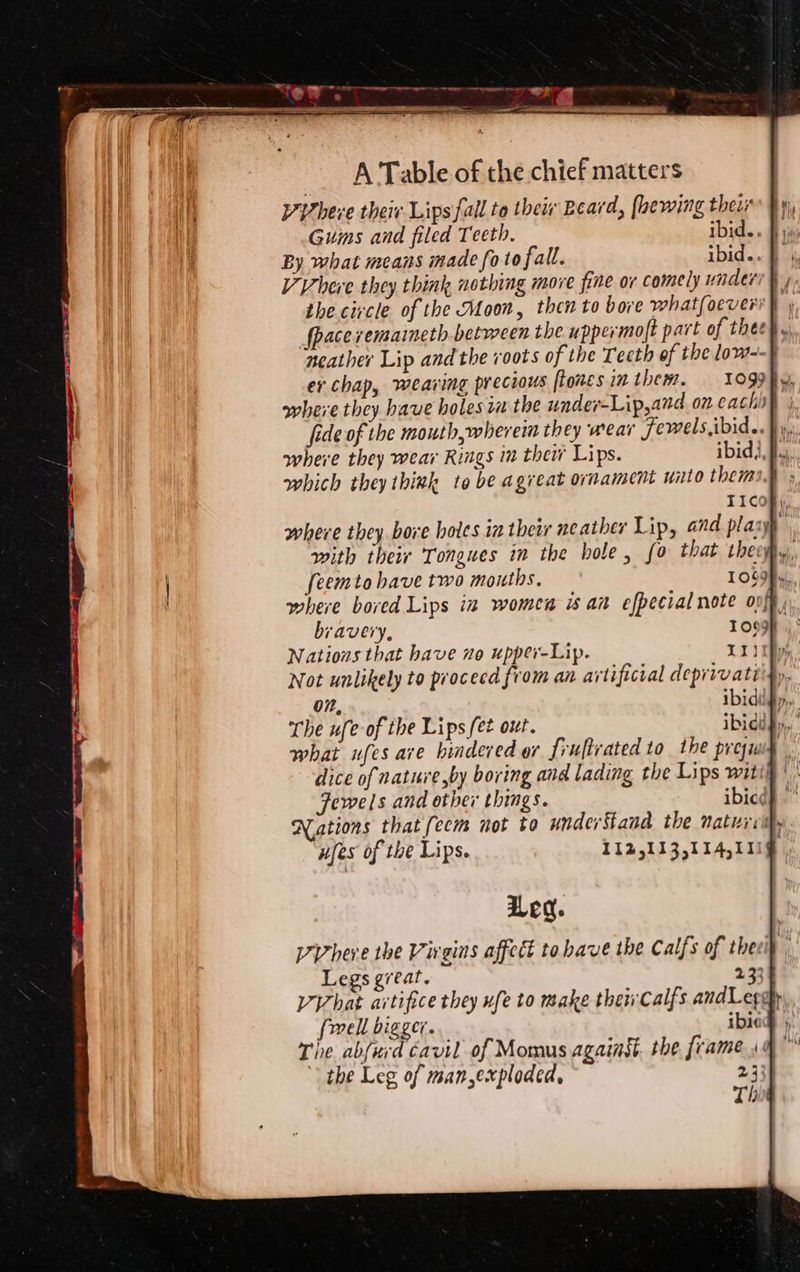 A Table of the chief matters
VVhere their Lips fall to their Beard, ſhewing their
Gums and filed Teeth. ibid.
By what means made ſo to fall. ibid.
VVhere they think nothing more fine or comely under
the circle of the Moon, then to bore whatſoever
ſpace remaineth between the uppermoſt part of the
neather Lip and the roots of the Teeth of the low-
er chap, wearing precious ſtones in them. 109
where they have holes in the under-Lip, and on each
ſide of the mouth, wherein they wear Jewels, ibid.
where they wear Rings in their Lips. ibid.
which they think to be a great ornament unto them.
110
where they bore holes in their neather Lip, and play
with their Tongues in the hole, ſo that they
ſeem to have two mouths. 109
where bored Lips in women is an eſpecial note of
bravery. 109
Nations that have no upper-Lip. 111
Not unlikely to proceed from an artificial deprivati-
on. ibid
The uſe of the Lips ſet out. ibid
what uſes are hindered or fruſtrated to the preju-
dice of nature, by boring and lading the Lips with
Jewels and other things. ibid
Nations that ſeem not to underſtand the naturall
uſes of the Lips. 112,113,114,11
Leg.
VVhere the Virgins affect to have the Calfs of their
Legs great. 233
VVhat artifice they uſe to make their Calfs and Legs
ſwell bigger. ibid
The abſurd cavil of Momus againſt the frame of
the Leg of man, exploded. 233
The